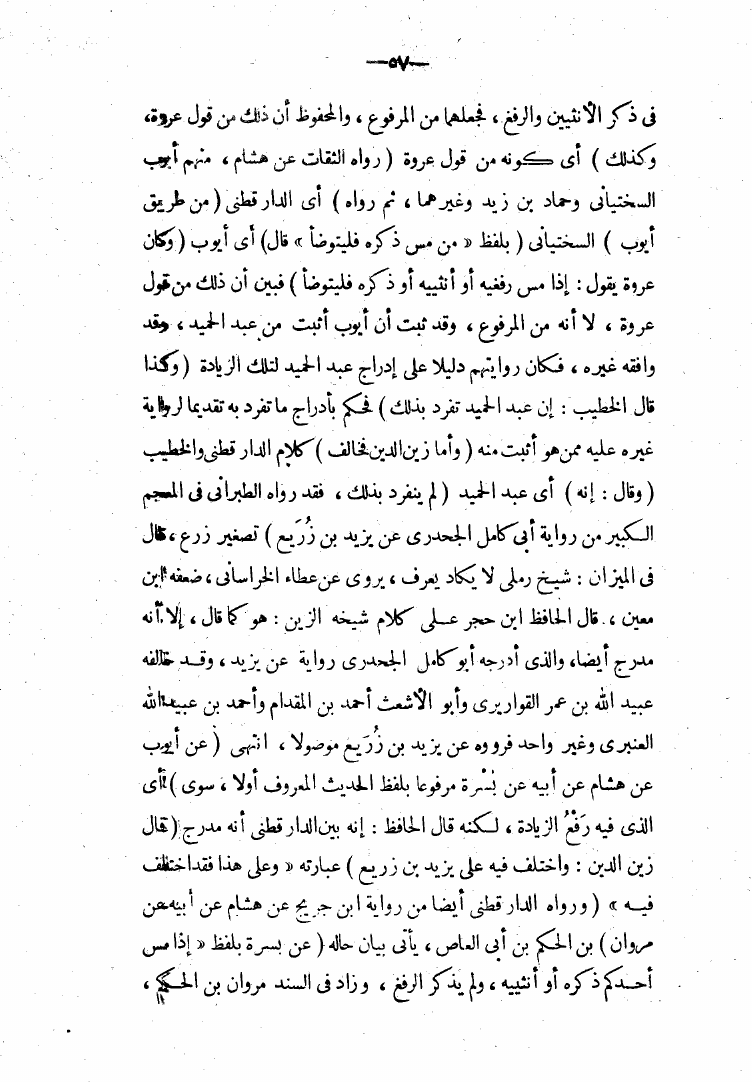 —٥٧—
فى ذكر الأنثيين والرفغ، فجعلهما من المرفوع، والمحفوظ أن ذلك من قول عروة،
وكذلك) أى كونه من قول عروة (رواه الثقات عن هشام، منهم أيوب
السختيانى وحماد بن زيد وغيرهما، ثم رواه) أى الدار قطنى (من طريق
أيوب) السختيانى (بلفظ «من مس ذكره فليتوضأ» قال) أى أيوب (وكان
عروة يقول: إذا مس رفغيه أو أنثييه أو ذكره فليتوضأ) فبين أن ذلك من قول
عروة، لا أنه من المرفوع، وقد ثبت أن أيوب أثبت من عبد الحميد، وقد
وافقه غيره، فكان روايتهم دليلا على إدراج عبد الحميد لتلك الزيادة (وكذا
قال الخطيب: إن عبد الحميد تفرد بذلك) فحكم بأدراج ما تفرد به تقديما لرواية
غيره عليه ممن هو أثبت منه (وأما زين الدين فخالف) كلام الدار قطنى والخطيب
(وقال: إنه) أى عبد الحميد (لم ينفرد بذلك، فقد رواه الطبرانى فى المعجم
الكبير من رواية أبى كامل الجحدرى عن يزيد بن زُرَيع) تصغير زرع، قال
فى الميزان: شيخ رملى لا يكاد يعرف، يروى عن عطاء الخراسانى، ضعفه ابن
معين،. قال الحافظ ابن حجر على كلام شيخه الزين: هو كما قال، إلا أنه
مدرج أيضا، والذى أدرجه أبو كامل الجحدرى رواية عن يزيد، وقد خالفه
عبيد الله بن عمر القواريرى وأبو الأشعث أحمد بن المقدام وأحمد بن عبيد الله
العنبرى وغير واحد فرووه عن يزيد بن زُرَيع موصولا، انتهى (عن أيوب
عن هشام عن أبيه عن بُسْرة مرفوعا بلفظ الحديث المعروف أولا، سوى) أى
الذى فيه رَفْعُ الزيادة، لكنه قال الحافظ: إنه بين الدار قطنى أنه مدرج (قال
زين الدين: واختلف فيه على يزيد بن زريع) عبارته «وعلى هذا فقد اختلف
فيه» (ورواه الدار قطنى أيضا من رواية ابن جريج عن هشام عن أبيه عن
مروان) بن الحكم بن أبى العاص، يأتى بيان حاله (عن بسرة بلفظ «إذا مس
أحدكم ذكره أو أنثييه، ولم يذكر الرفغ، وزاد فى السند مروان بن الحكم،